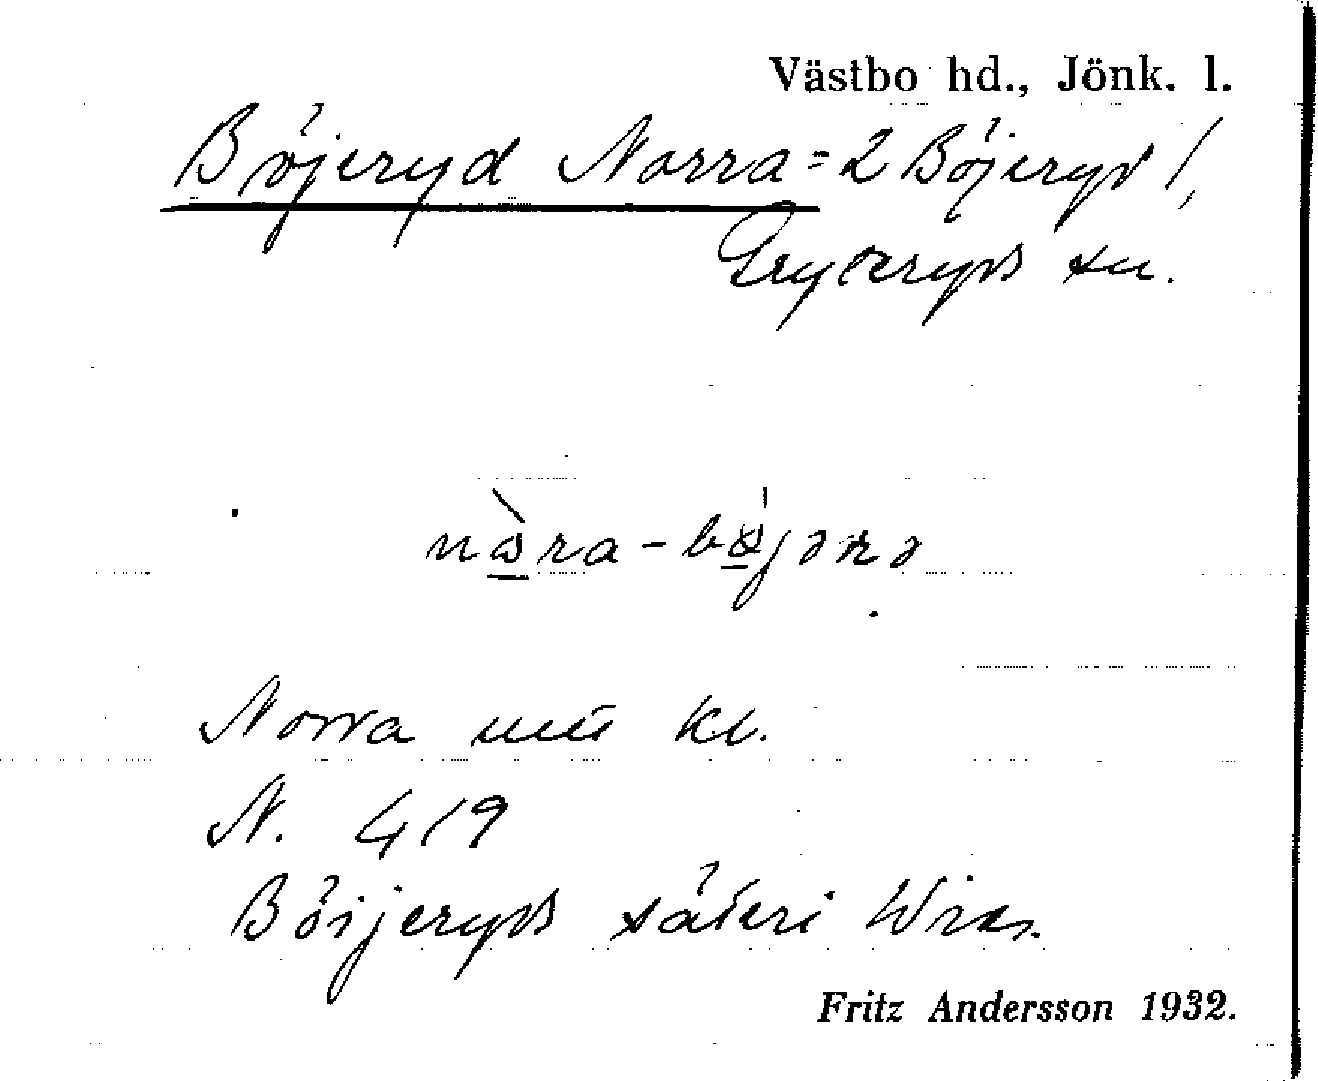 Västbo hd., Jönk. l.
Böjeryd Norra = 2 Böjeryd /,
Gryteryds sn.
nòra-bö́jərə
Norra uuu kl.
N. 419
Böijeryds säteri Wies.
Fritz Andersson 1932.